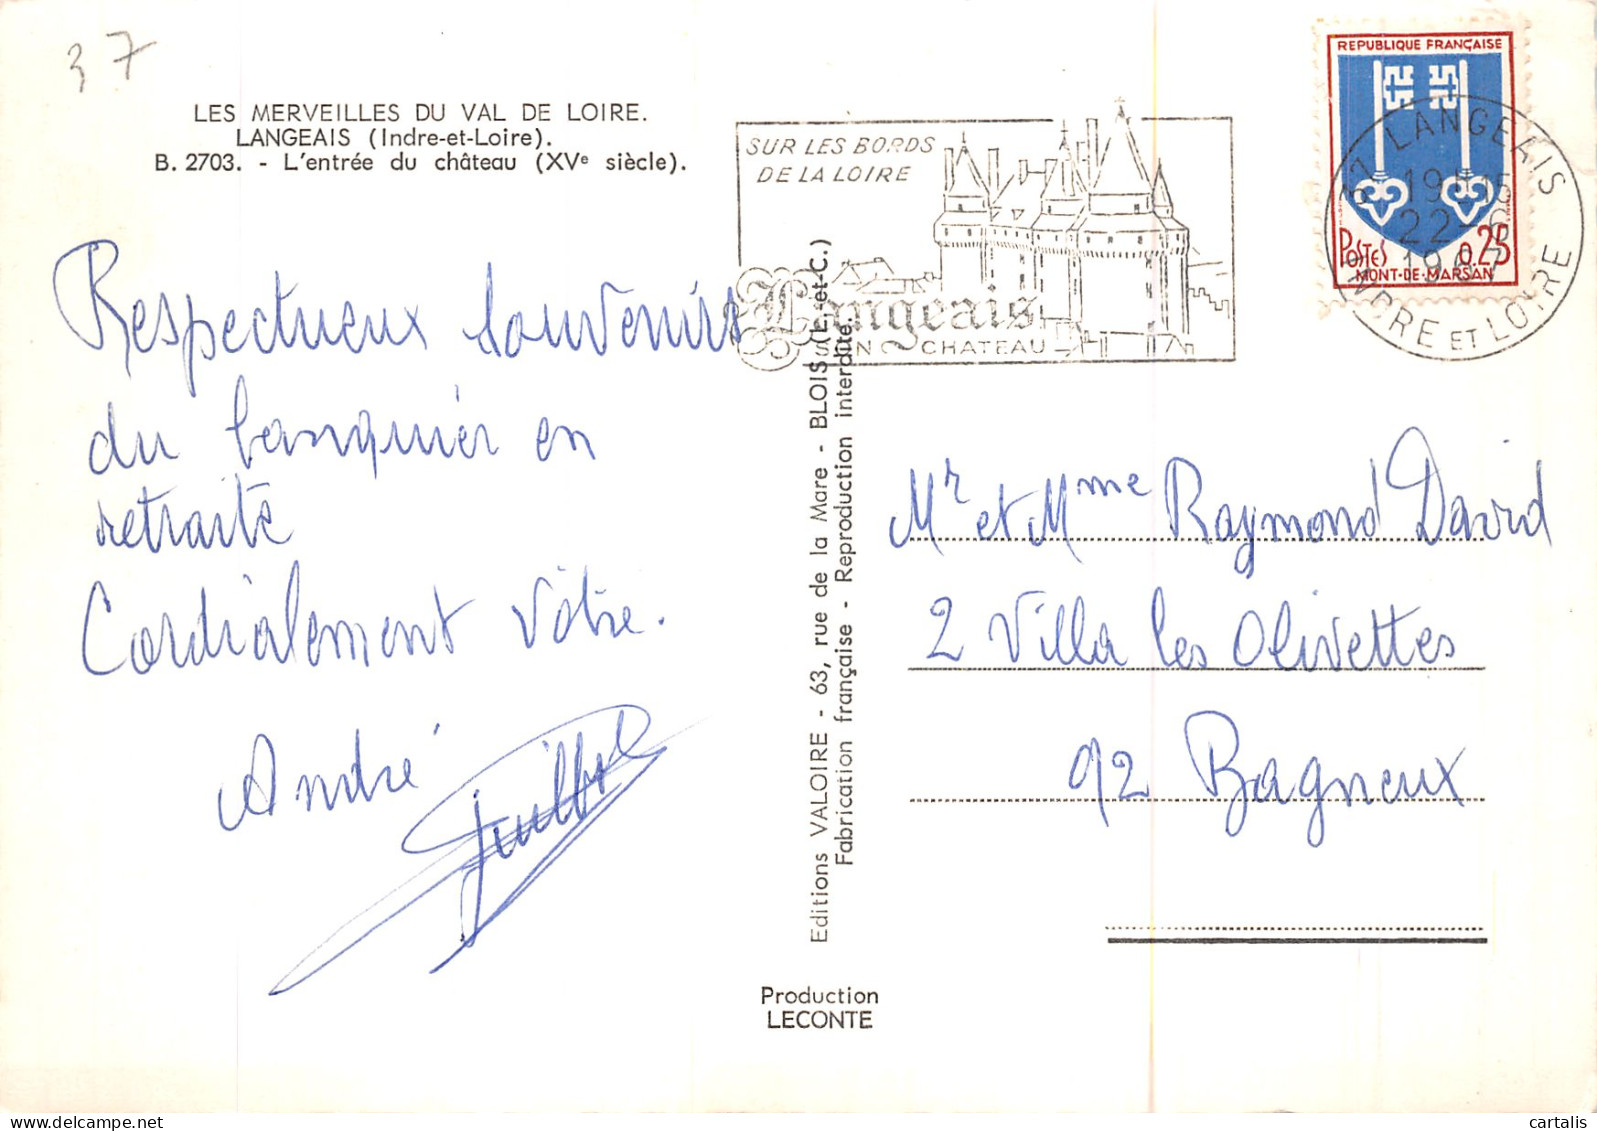 37
LES MERVEILLES DU VAL DE LOIRE.
LANGEAIS (Indre-et-Loire).
B. 2703. - L'entrée du château (XVe siècle).
Respectueux souvenirs
du banquier en
retraite
Cordialement vôtre.
André
SUR LES BORDS
DE LA LOIRE
Langeais
SON CHATEAU
Editions VALOIRE - 63, rue de la Mare - BLOIS (L.-et-C.)
Fabrication française - Reproduction interdite.
Production
LECONTE
REPUBLIQUE FRANÇAISE
POSTES 0,25
MONT-DE-MARSAN
37 LANGEAIS
22-6
1967
INDRE ET LOIRE
Mr et Mme Raymond David
2 Villa les Olivettes
92 Bagneux
cartalis